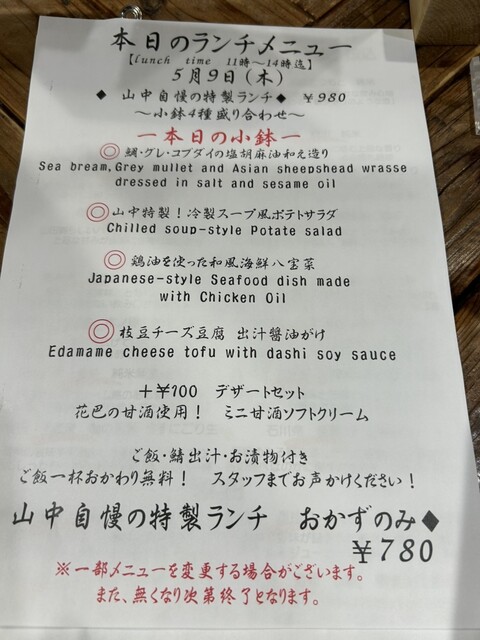 本日のランチメニュー
【lunch time 11時～14時迄】
5月9日(木)
◆ 山中自慢の特製ランチ◆ ￥980
～小鉢4種盛り合わせ～
ー本日の小鉢ー
◎鯛・グレ・コブダイの塩胡麻油和え造り
Sea bream,Grey mullet and Asian sheepshead wrasse
dressed in salt and sesame oil
◎山中特製！冷製スープ風ポテトサラダ
Chilled soup-style Potate salad
◎鶏油を使った和風海鮮八宝菜
Japanese-style Seafood dish made
with Chicken Oil
◎枝豆チーズ豆腐 出汁醤油がけ
Edamame cheese tofu with dashi soy sauce
＋￥100 デザートセット
花巴の甘酒使用！ ミニ甘酒ソフトクリーム
ご飯・鯖出汁・お漬物付き
ご飯一杯おかわり無料！ スタッフまでお声かけください！
山中自慢の特製ランチ おかずのみ◆
￥780
※一部メニューを変更する場合がございます。
また、無くなり次第終了となります。